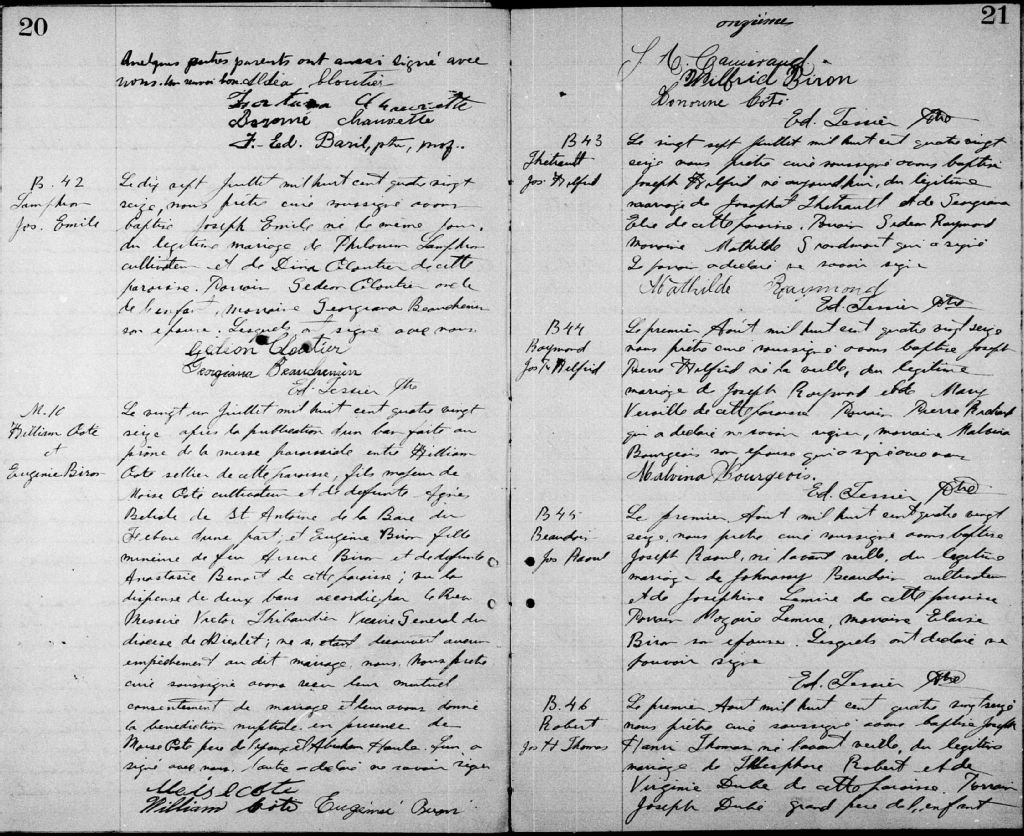 20
Quelques autres parents ont aussi signé avec
nous. Aldéa Cloutier
Fortuna Chauvette
Dorome Chauvette
F. Ed. Baril, ptre, prof.
B. 42
Jos. Emile
Le dix sept Juillet mil huit cent quatre vingt
seize, nous prêtre curé soussigné avons
baptisé Joseph Emile né le même jour,
du légitime mariage de Philorum
cultivateur et de Dina Cloutier de cette
paroisse. Parrain Gedeon Cloutier oncle
de l'enfant, marraine Georgiana Beauchemin
son épouse. Lesquels ont signé avec nous.
Gédéon Cloutier
Georgiana Beauchemin
Ed. Tessier Ptre
M. 10
William Coté
et
Eugénie Biron
Le vingt un Juillet mil huit cent quatre vingt
seize après la publication d'un ban faite au
prône de la messe paroissiale entre William
Coté sellier de cette paroisse, fils majeur de
Moise Coté cultivateur et de défunte Agnès
de St Antoine de la Baie du
Febvre d'une part, et Eugénie Biron fille
mineure de feu Arsène Biron et de défunte
Anastasie Benoit de cette paroisse; vu la
dispense de deux bans accordée par le Rév
Messire Victor Thibaudier Vicaire General du
diocese de Nicolet; ne s'étant découvert aucun
empêchement au dit mariage, nous, nous prêtre
curé soussigné avons reçu leur mutuel
consentement de mariage et leur avons donné
la bénédiction nuptiale en présence de
Moise Coté père de l'époux et Abraham Houle. L'un a
signé avec nous. L'autre a déclaré ne savoir signer
Moise Coté
William Coté Eugénie Biron
onzième
21
Wilfrid Biron
Coté
Ed. Tessier Ptre
B 43
Thetrault
Jos. Wilfrid
Le vingt sept Juillet mil huit cent quatre vingt
seize nous prêtre curé soussigné avons baptisé
Joseph Wilfrid né aujourd'hui, du légitime
mariage de Josaphat Thetrault et de Georgiana
de cette paroisse. Parrain Gedeon Raymond
marraine Mathilde qui a signé
Le parrain a déclaré ne savoir signer
Mathilde Raymond
Ed. Tessier Ptre
B44
Raymond
Jos Wilfrid
Le premier Août mil huit cent quatre vingt seize
nous prêtre curé soussigné avons baptisé Joseph
Pierre Wilfrid né la veille, du légitime
mariage de Joseph Raymond et de Mary
Verville de cette paroisse Parrain Pierre Richard
qui a déclaré ne savoir signer, marraine Malvina
Bourgeois son épouse qui a signé avec nous
Malvina Bourgeois.
Ed. Tessier Ptre
B45
Beaudoin
Jos Raoul
Le premier Aout mil huit cent quatre vingt
seize, nous prêtre curé soussigné avons baptisé
Joseph Raoul, né l'avant veille, du légitime
mariage de Johnny Beaudoin cultivateur
et de Joséphine Lemire de cette paroisse
Parrain Nazaire Lemire, marraine Eloise
Biron son épouse. Lesquels ont déclaré ne
pouvoir signer
Ed. Tessier Ptre
B. 46
Robert
Jos H Thomas
Le premier Aout mil huit cent quatre vingt seize
nous prêtre curé soussigné avons baptisé Joseph
Henri Thomas né l'avant veille, du légitime
mariage de Théophore Robert et de
Virginie Dubé de cette paroisse. Parrain
Joseph Dubé grand père de l'enfant